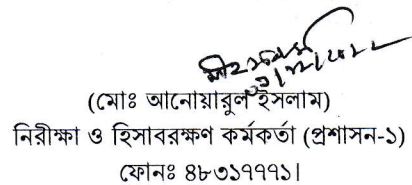 (মোঃ আনোয়ারুল ইসলাম)
নিরীক্ষা ও হিসাবরক্ষণ কর্মকর্তা (প্রশাসন-১)
ফোনঃ ৪৮৩১৭৭৭১।